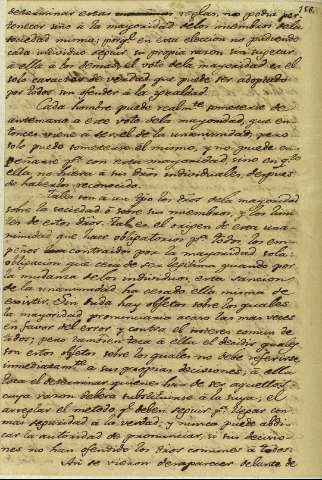 158.
determinar estas reglas, no podia per-
tenecer sino á la mayoridad de los miembros de la
sociedad misma; porq.e en esta eleccion no pudiendo
cada individuo seguir su propia razon sin sujetar
á ella á los demas, el voto de la mayoridad es el
solo caracter de verdad que puede ser adoptado
por todos sin ofender á la igualdad.
Cada hombre puede realm.te someterse de
antemano á este voto de la mayoridad, que en-
tonces viene á ser el de la unanimidad, pero
solo puede someterse él mismo, y no puede em-
peñarse p.a con esta mayoridad, sino en q.to
ella no hiera á sus dros individuales, despues
de haberlos reconocido.
Tales son á un tpo los dros de la mayoridad
sobre la sociedad ó sobre sus miembros, y los limi-
tes de estos dros. Tal es el origen de esta una-
nimidad que hace obligatorios p.a todos los em-
peños contraidos por la mayoridad sola:
obligacion que cesa de ser legitima quando por
la mudanza de los individuos, esta sancion
de la unanimidad ha cesado ella misma de
existir. Sin duda hay objetos sobre los quales
la mayoridad pronunciaria acaso las mas veces
en favor del error y contra el interes comun de
todos; pero tambien toca á ella el decidir quales
son estos objetos sobre los quales no debe referirse
inmediatam.te á sus propias decisiones; á ella
toca el determinar quienes han de ser aquellos
cuya razon deberá substituirse á la suya; el
arreglar el metodo q.e deben seguir p.a llegar con
mas seguridad á la verdad; y nunca puede abdi-
car la autoridad de pronunciar, si sus decisio-
nes no han ofendido los dros comunes á todos.
Asi se vieron desaparecer delante de